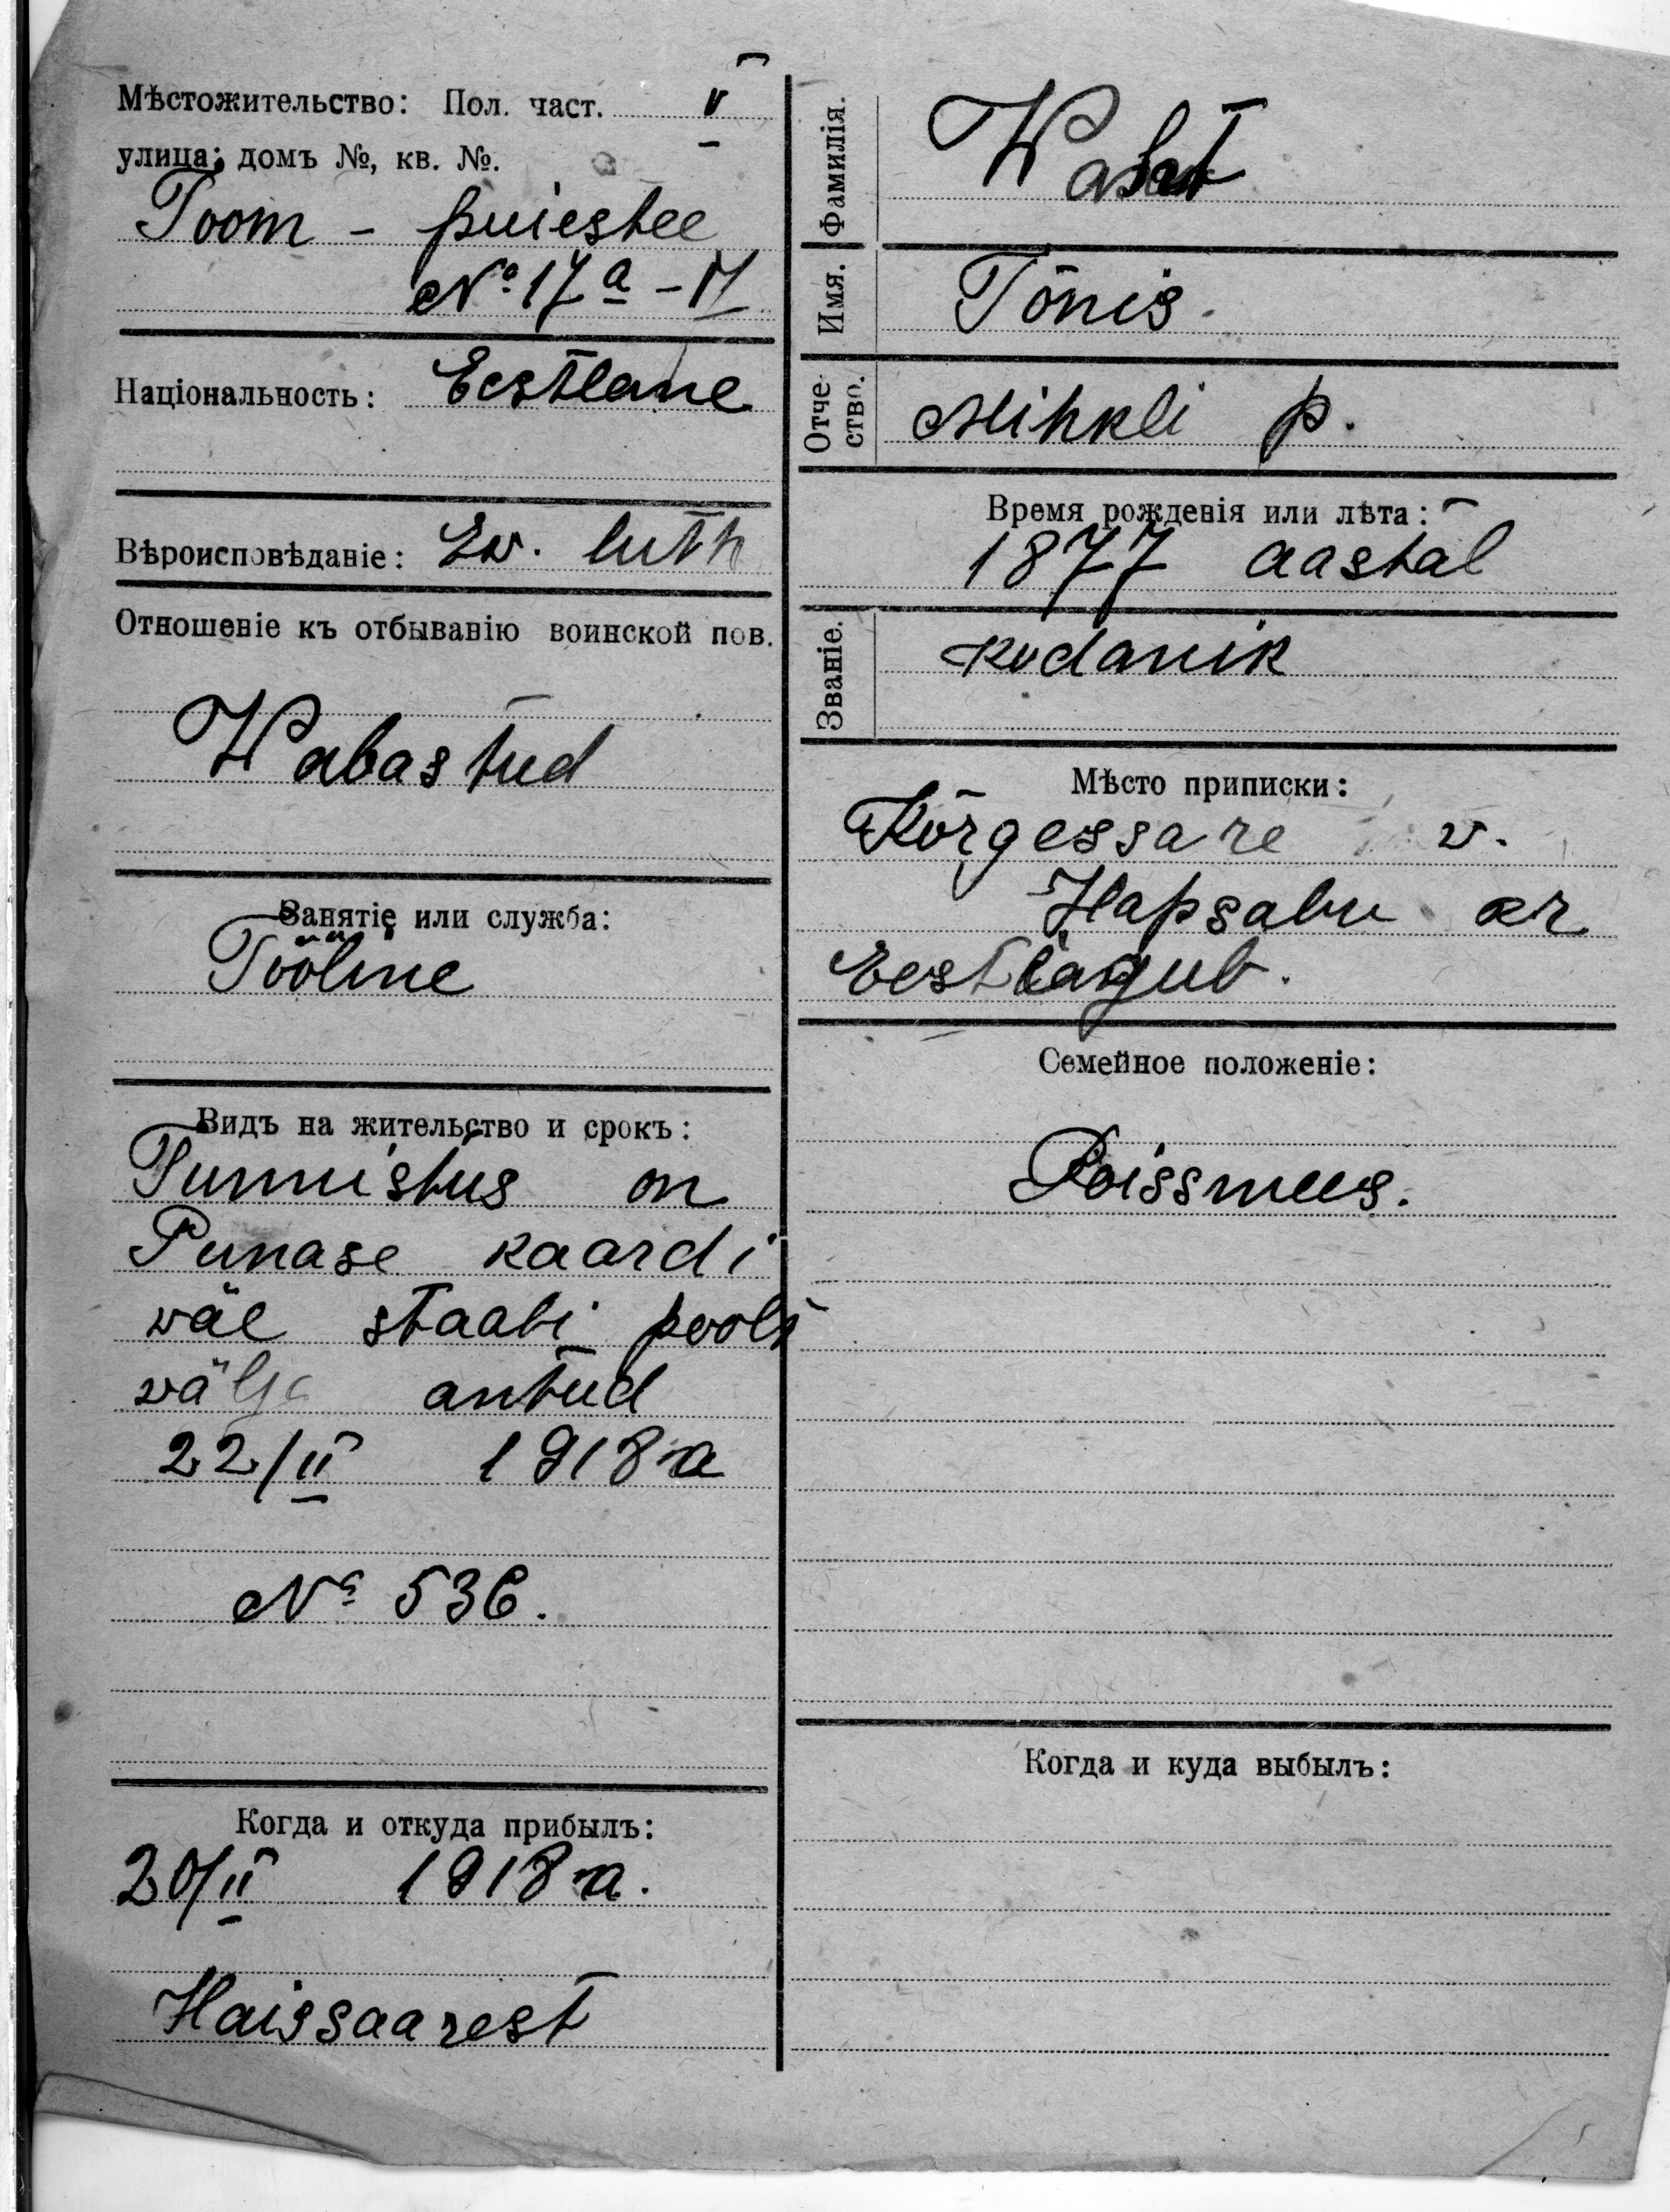 Мѣстожительство: Пол. част. V
улица; домъ №, кв. №.
Toom - puiestee
№ 17 a - 17
Національность: Eestlane
Вѣроисповѣданіе: Ew. luth
Отношеніе къ отбыванію воинской пов.
Wabastud
Занятіе или служба:
Tööline
Видъ на жительство и срокъ:
Tunnistus on
Punase kaardi
wäe staabi poolt
wälja antud
22/II 1918 a
№ 536.
Когда и откуда прибылъ:
20/II 1918 a.
Haissaarest
Фамилія.
Имя. Tõnis.
Отчество. Mihkli p.
Время рожденія или лѣта:
1877 aastal
Званіе. kodanik
Мѣсто приписки:
Kõrgessare v.
Hapsalu kr
Eestiägub.
Семейное положеніе:
Poissmees.
Когда и куда выбылъ: